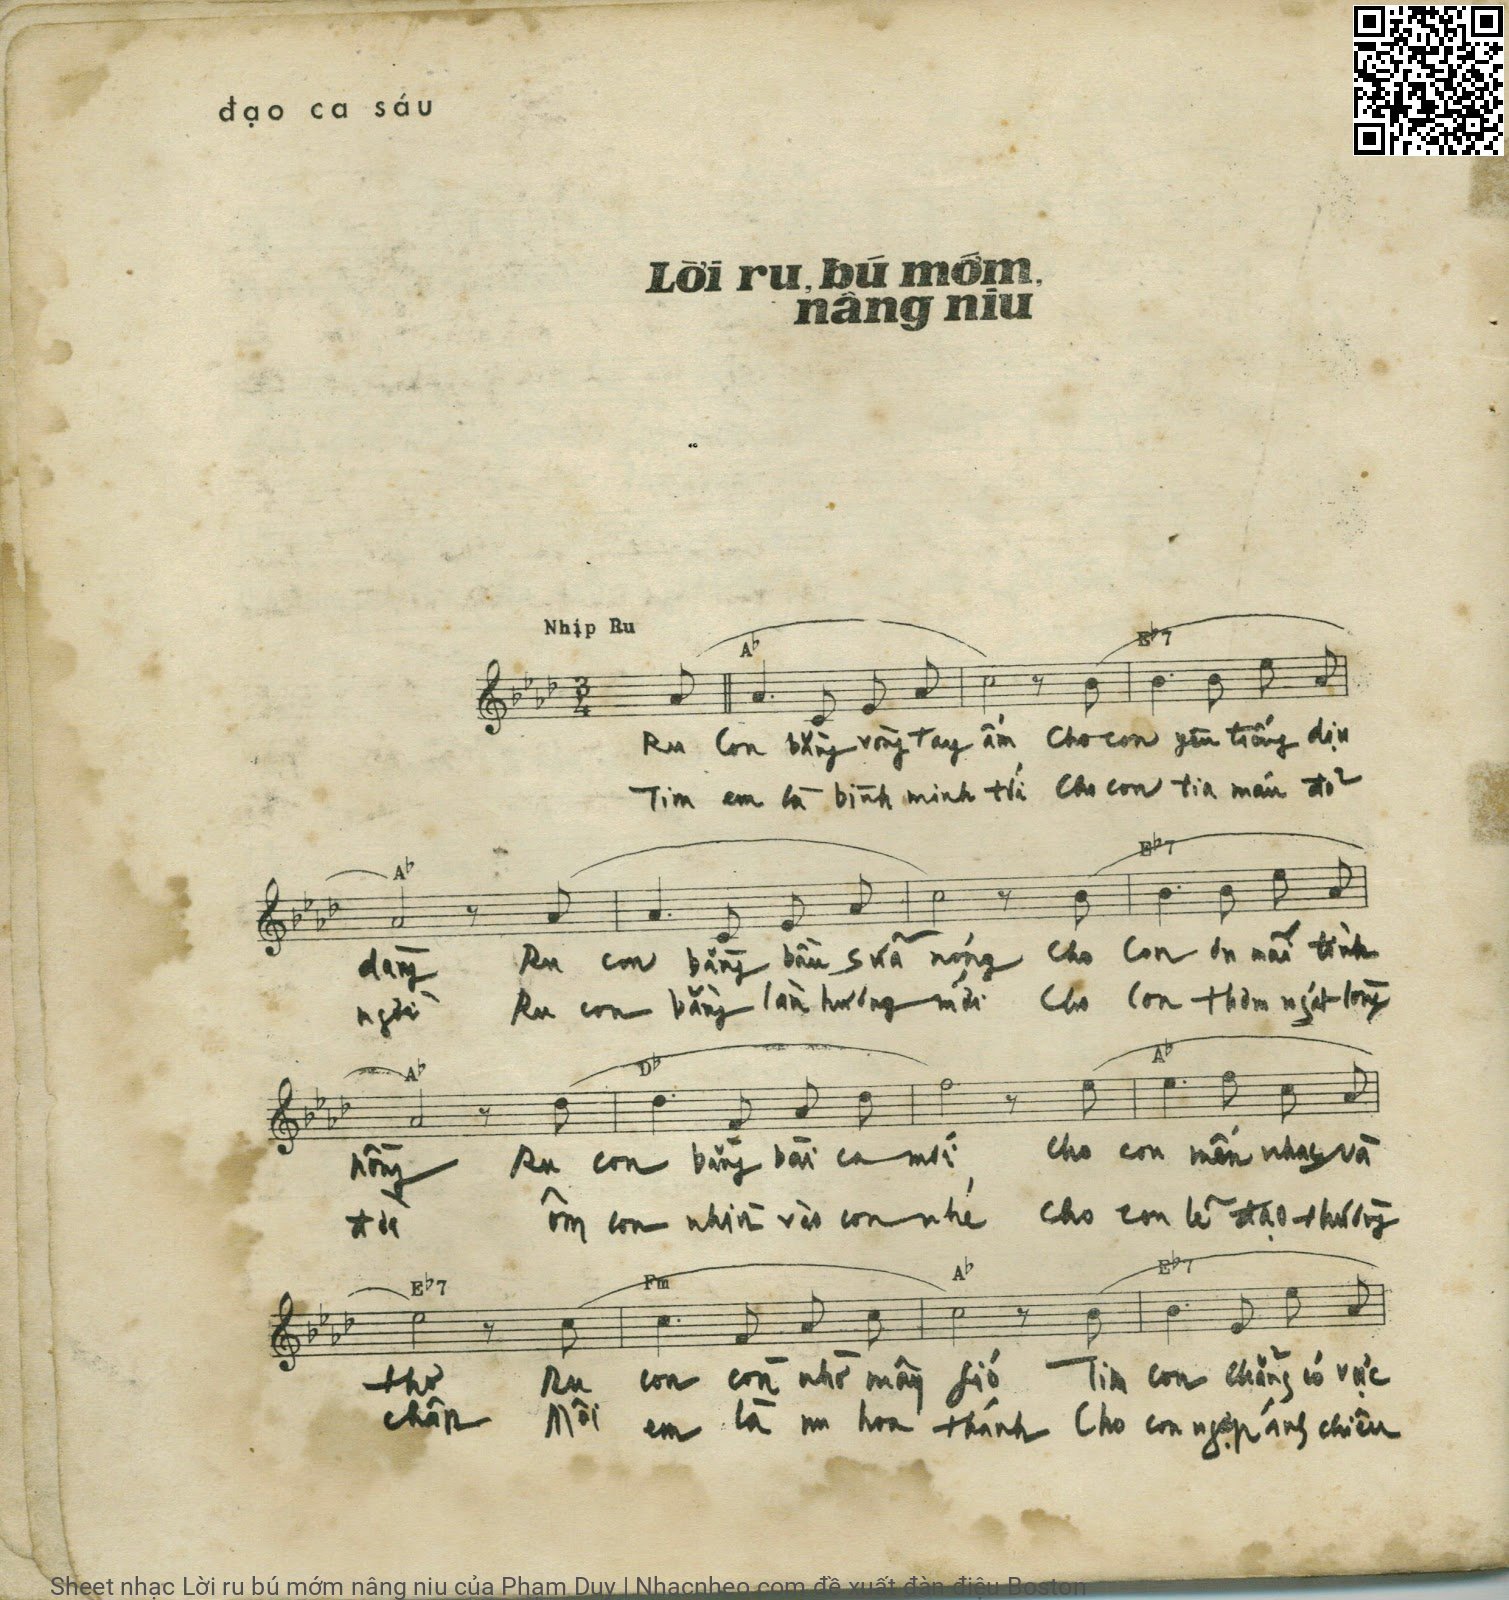 đạo ca sáu
Lời ru, bú mớm,
nâng niu
Nhịp Ru
A♭ E♭7
3
4
Ru Con bằng vòng tay ấm Cho con yên tiếng dịu
Tim em là bình minh tới Cho con tia máu đỏ
A♭ E♭7
dàng Ru con bằng bầu sữa nóng Cho Con ơn mãi tình
ngời Ru con bằng làn hương mới Cho Con thơm ngát lòng
A♭ D♭ A♭
nồng Ru con bằng bài ca mới Cho con mến nhạc và
đời Ôm con nhịn vào con nhé Cho con lễ đạo thường
E♭7 Fm A♭ E♭7
thơ Ru con còn nhờ mây gió Tim con chẳng có vực
chân Môi em là nụ hoa thánh Cho con ngộp ánh chiều
Sheet nhạc Lời ru bú mớm nâng niu của Phạm Duy | Nhacnheo.com đề xuất đàn điệu Boston